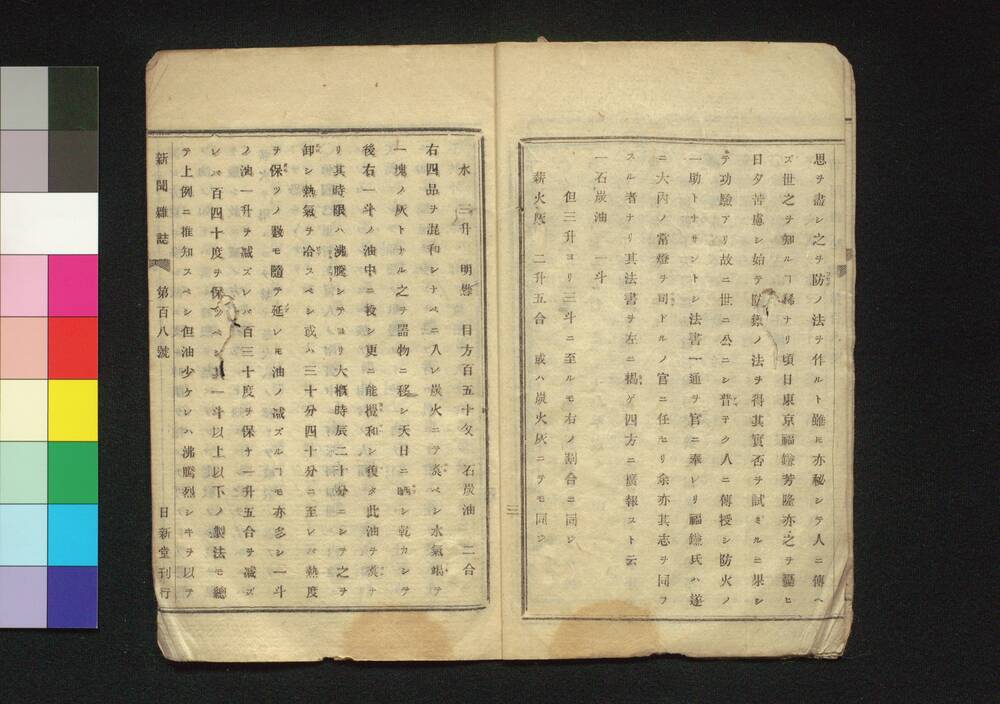 思ヲ盡シ之ヲ防ノ法ヲ作ルト雖モ亦秘シテ人ニ傳ヘ
ズ世之ヲ知ルヿ稀ナリ頃日東京福鎌芳隆亦之ヲ憂ヒ
日夕苦慮シ始テ防ノ法ヲ得其實否ヲ試ミルニ果シ
テ功驗アリ故ニ世ニ公ニシ普テク人ニ傳授シ防火ノ
一助トナサントシ法書一通ヲ官ニ奉レリ福鎌氏ハ遂
ニ大内ノ常燈ヲ司ドルノ官ニ任セリ余亦其志ヲ同フ
スル者ナリ其法書ヲ左ニ揭ゲ四方ニ廣報スト云
一石炭油 一斗
但三升ヨリ三斗ニ至ルモ右ノ割合ニ同シ
薪火灰 二升五合 或ハ炭火灰ニテモ同シ
水 三升 明礬 目方百五十匁 石炭油 二合
右四品ヲ混和シナベニ入レ炭火ニテ煑ベシ水氣竭テ
一塊ノ灰トナル之ヲ器物ニ移シ天日ニ晒シ乾カシテ
後右一斗ノ油中ニ投シ更ニ能攪和シ後タ此油ヲ煑ナ
リ其時限ハ沸騰シテヨリ大概時辰二十分ニシテ之ヲ
卸シ熱氣ヲ冷スベシ或ハ三十分四十分ニ至レバ熱度
ヲ保ツノ數モ隨テ延レモ油ノ减ズルヿモ亦多シ一斗
ノ油一升ヲ减ズレバ百三十度ヲ保ケ一升五合ヲ减ズ
レバ百四十度ヲ保ツベシ其一斗以上以下ノ製法モ總
テ上例ニ推知スベシ但油少ケレハ沸騰烈シキヲ以テ
新聞雜誌 第百八號 日新堂刊行